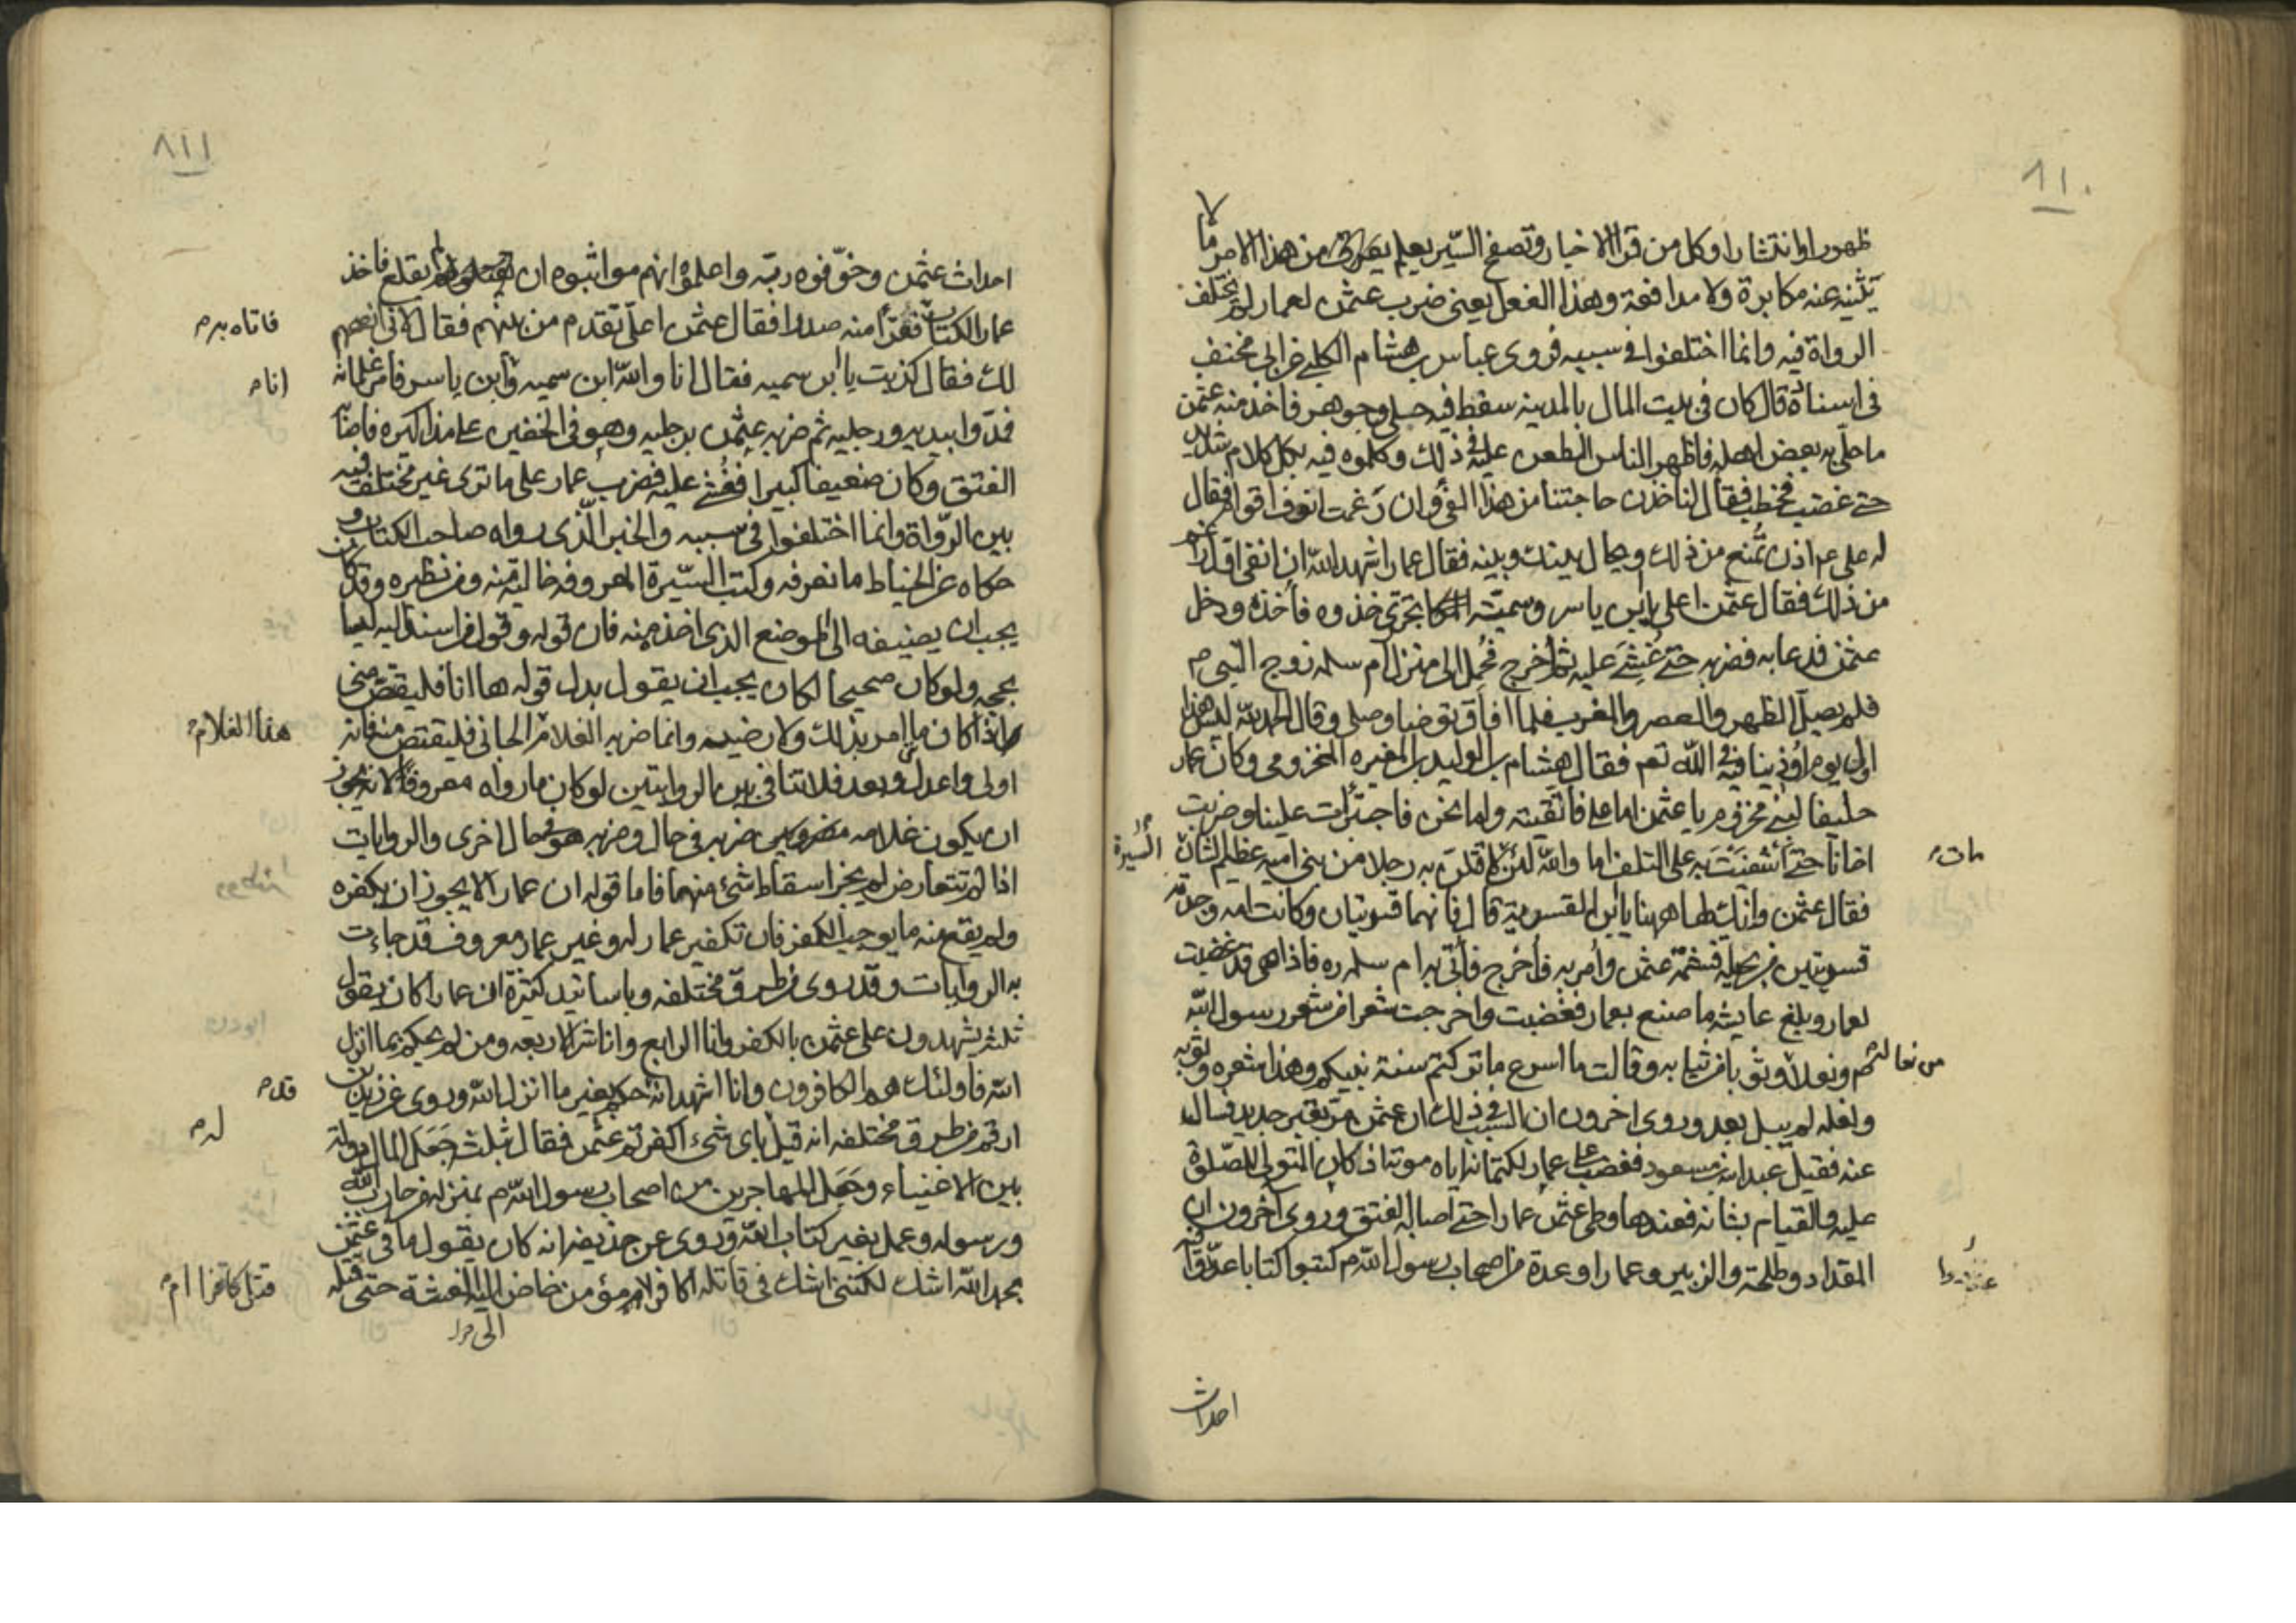 ٨١٠
ظهورا وانتشارا وكل من قرأ الاخبار وتصفح السير يعلم من هذا الامر ما لا
يثنيه عنه مكابرة ولا مدافعة وهذا الفعل يعنى ضرب عثمن لعمار لم يختلف
الرواة فيه وانما اختلفوا فى سببه فروى عباس بن هشام الكلبى عن ابى مخنف
فى اسناده قال كان فى بيت المال بالمدينه سفط فيه حلى وجوهر فاخذ منه عثمن
ما حلى به بعض اهله فاظهر الناس الطعن عليه فى ذلك وكلموه فيه بكل كلام شديد
حتى غضب فخطب فقال لناخذن حاجتنا من هذا الفئ وان رغمت انوف اقوام فقال
له على ع اذن تمنع من ذلك ويحال بينك وبينه فقال عمار اشهد الله ان انفى اول راغم
من ذلك فقال عثمن اعلى يا بن ياسر وسمية تجترى خذوه فأخذوه ودخل
عثمن فدعا به فضربه حتى غشى عليه ثم أخرج فحمل الى منزل ام سلمه زوج النبى م
فلم يصل الظهر والعصر والمغرب فلما افاق توضأ وصلى وقال الحمد لله ليس هذا
اول يوم أوذينا فيه فى الله تعم فقال هشام بن الوليد بن المغيره المخزومى وكان عمار
حليفا لبنى مخزوم يا عثمن اما على فاتقيته واما نحن فاجترأت علينا وضربت
اخانا حتى أشفيت به على التلف اما والله لئن مات لاقتلن به رجلا من بنى اميه عظيم الشان
السيرة
فقال عثمن وانك لها هنا يا بن القسرية قال فانهما قسريتان وكانت امه وجدته
قسريتين من بجيلة فشتمه عثمن وأمر به فأخرج فأتى به ام سلمه ره فاذا هى قد غضبت
لعمار وبلغ عايشه ما صنع بعمار فغضبت واخرجت شعرا من شعر رسول الله
م ونعلا من نعاله وثوبا من ثيابه وقالت ما اسرع ما تركتم سنة نبيكم وهذا شعره وثوبه
ونعله لم يبل بعد وروى اخرون ان السبب فى ذلك ان عثمن مر بقبر جديد فسال
عنه فقيل عبد الله بن مسعود فغضب على عمار لكتمانه اياه موته اذ كان المتولى للصلوة
عليه والقيام بشانه فعندها وطى عثمن عمارا حتى اصابه الفتق وروى آخرون ان
المقداد وطلحة والزبير وعمارا وعدة من اصحاب رسول الله م كتبوا كتابا عددوا فيه
احداث
٨١١
احداث عثمن وخوفوه ربه واعلموه انهم مواثبوه ان لم يقلع فاخذ
عمار الكتاب فاتاه به م فقرأ منه صدرا فقال عثمن اعلى تقدم من بينهم فقال لانى انصحهم
لك فقال كذبت يا ابن سميه فقال انا والله ابن سميه وانا م ابن ياسر فأمر غلمانه
فمدوا بيديه ورجليه ثم ضربه عثمن برجليه وهو فى الخفين على مذاكيره فاصابه
الفتق وكان ضعيفا كبيرا فغشى عليه فضرب عمار على ما ترى غير مختلف فيه
بين الرواة وانما اختلفوا فى سببه والخبر الذى رواه صاحب الكتاب و
حكاه عن الخياط ما نعرفه وكتب السيرة المعروفه خالية منه ومن نظيره وقد كان
يجب ان يضيفه الى الموضع الذى اخذه منه فان قوله وقول من اسند اليه ليسا
بحجه ولو كان صحيحا لكان يجب ان يقول بدل قوله ها انا فليقتص منى
واذا كان ما امر بذلك ولا رضيه وانما ضربه الغلام هذا الغلام م الجانى فليقتص منه فانه
اولى واعدل وبعد فلا تنافى بين الروايتين لو كان ما رواه معروفا لانه يجوز
ان يكون غلامه ضربه فى حال وضربه هو فى حال اخرى والروايات
اذا لم تتعارض لم يجز اسقاط شئ منهما فاما قوله ان عمارا لا يجوز ان يكفره
ولم يقع منه ما يوجب الكفر فان تكفير عمار له وغير عمار معروف قد جاءت
به الروايات وقد روى من طرق مختلفه وباسانيد كثيرة ان عمارا كان يقول
ثلثه يشهدون على عثمن بالكفر وانا الرابع وانا شر الاربعه ومن لم يحكم بما انزل
الله فاولئك هم الكافرون وانا اشهد انه قد م حكم بغير ما انزل الله وروى عن زيد بن
ارقم من طرق مختلفه انه قيل له م باى شىء اكفرتم عثمن فقال بثلث جعل المال دولة
بين الاغنياء وجعل المهاجرين من اصحاب رسول الله م بمنزله من حارب الله
ورسوله وعمل بغير كتاب الله وروى عن حذيفه انه كان يقول ما فى عثمن
بحمد الله اشك لكننى اشك فى قاتله اكافر قتل كافرا ام م ام مؤمن خاض اليه الفتنة حتى قتله